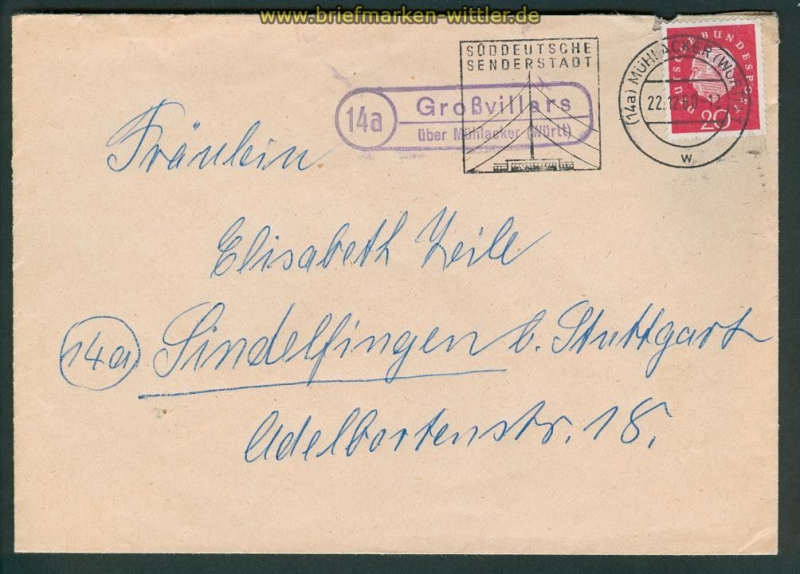 www.briefmarken-wittler.de
SÜDDEUTSCHE
SENDERSTADT
14a
Großvillars
über Mühlacker (Württ)
(14a) MÜHLACKER (WÜ
22.12.60-12
w
BUNDESPOST
20
Fräulein
Elisabeth Zeile
14a Sindelfingen b. Stuttgart
Adelbortenstr. 18.